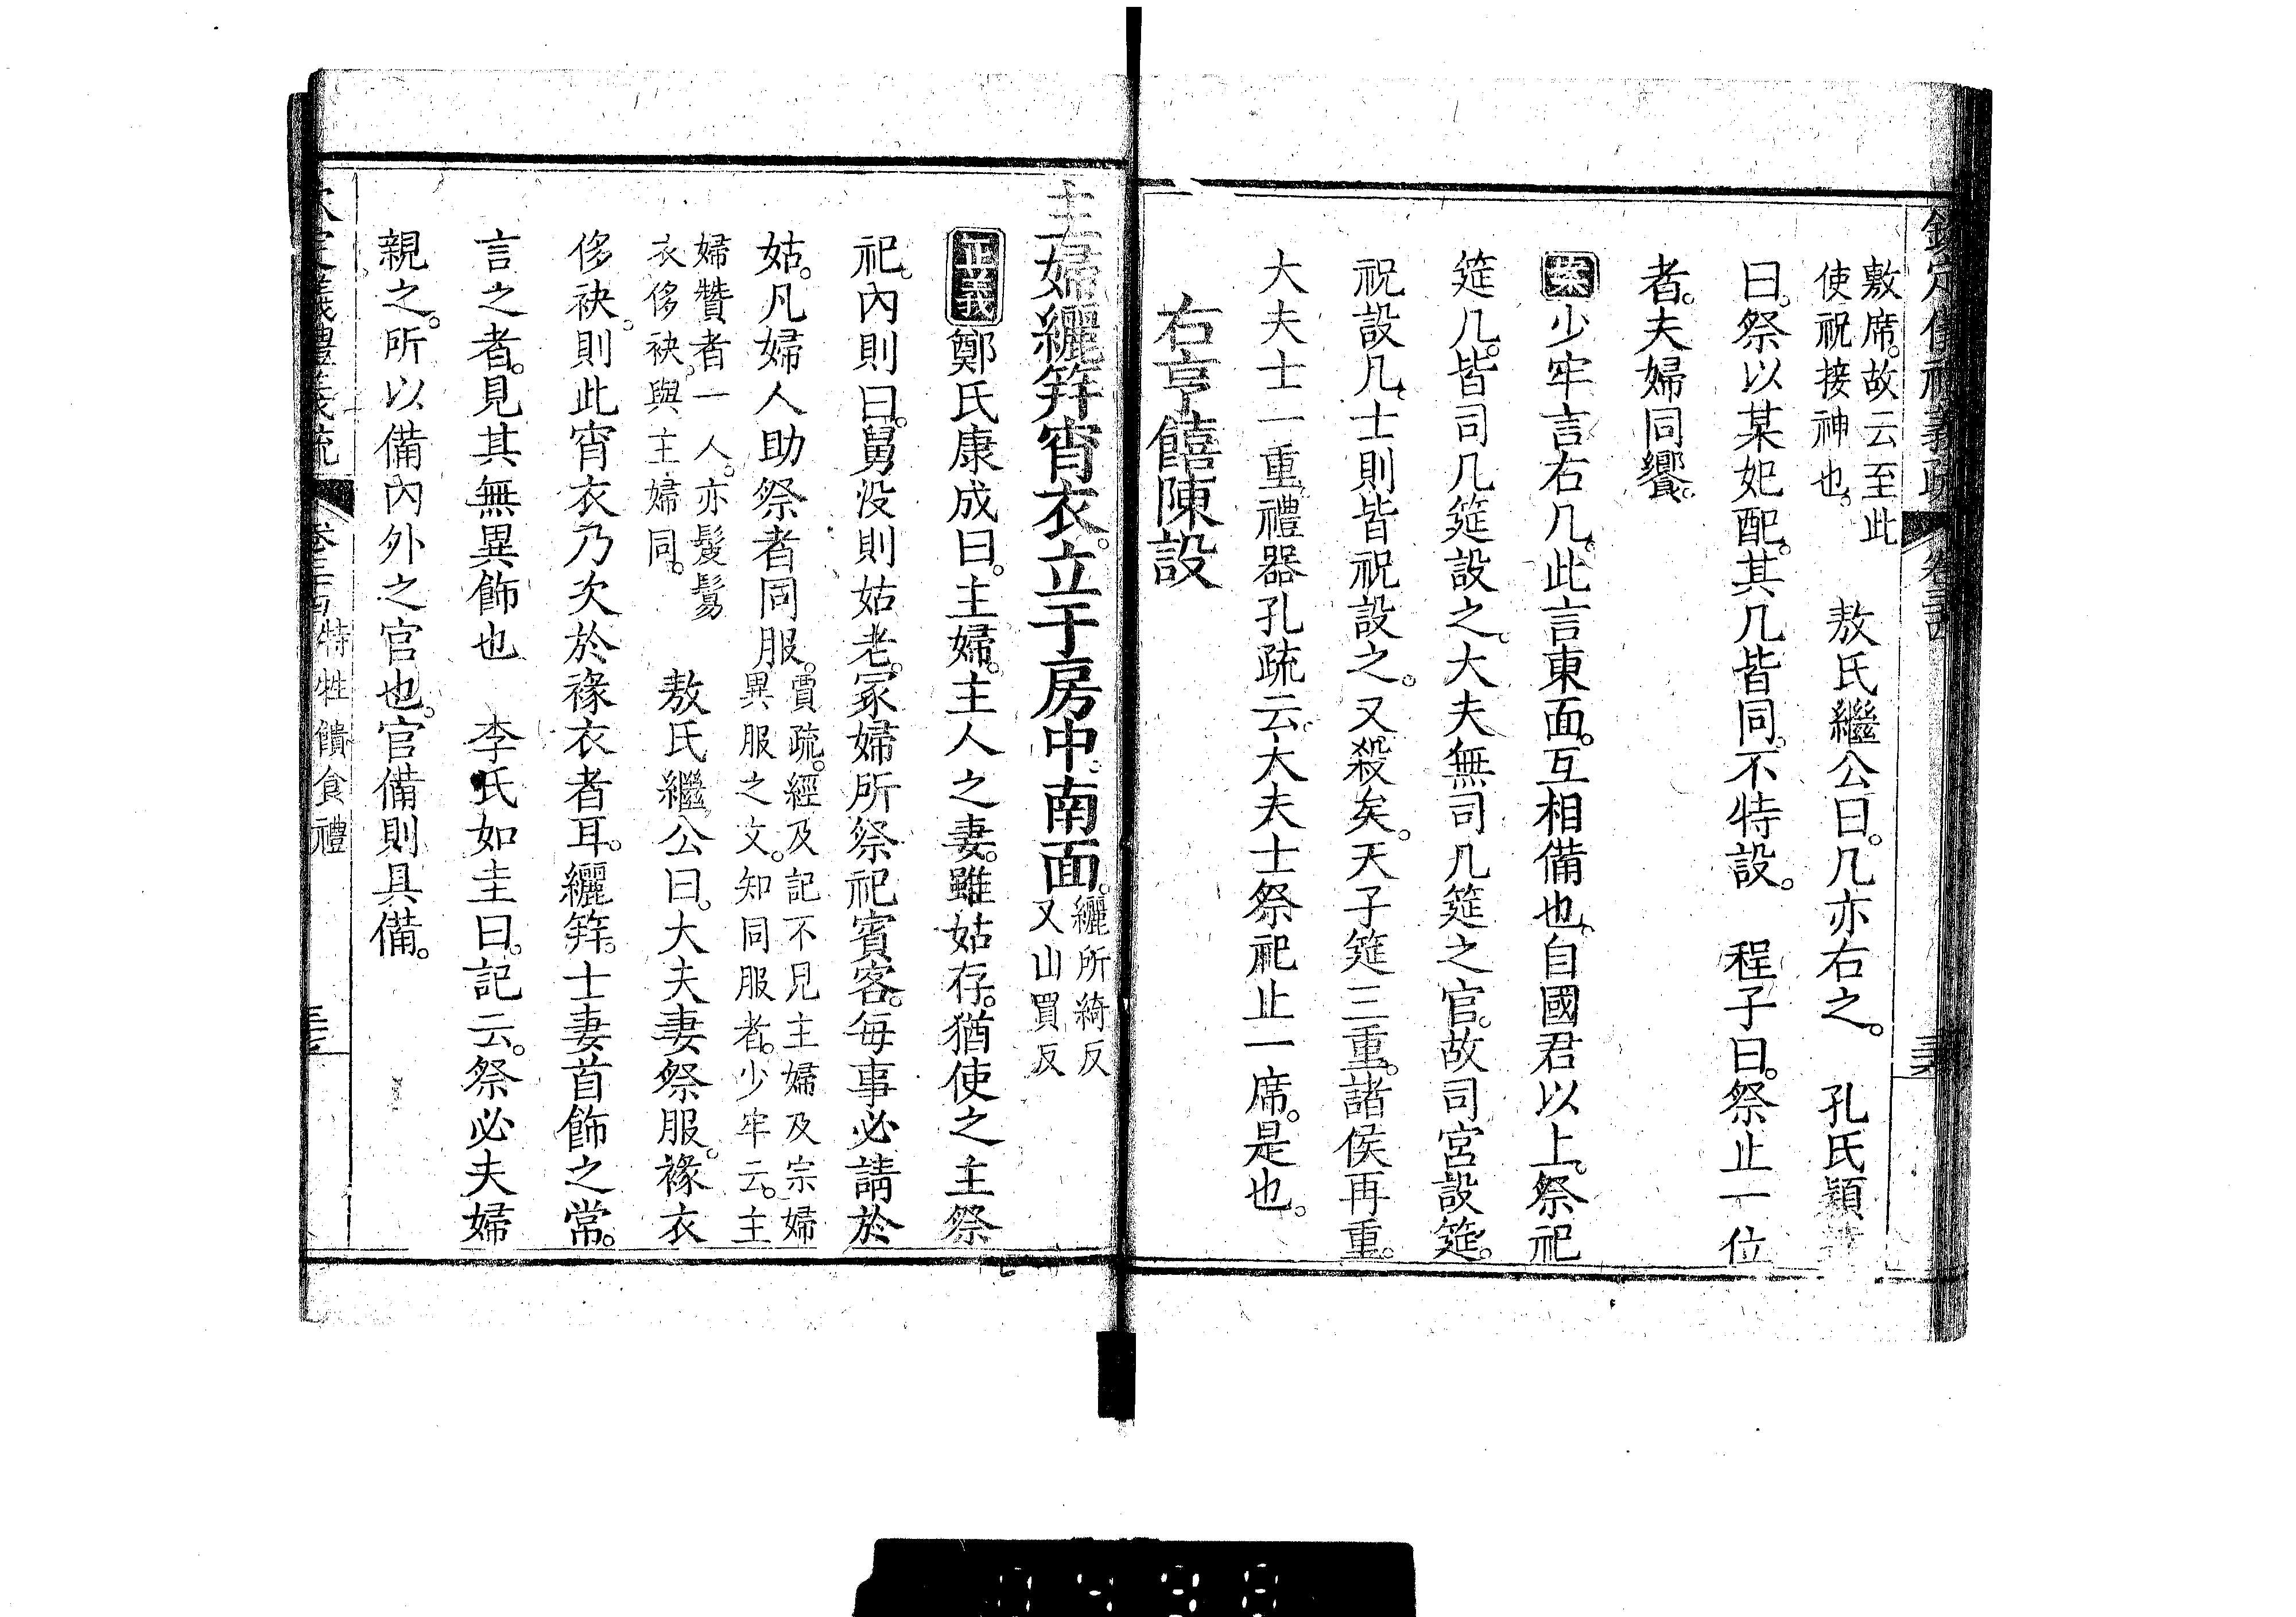 欽定儀禮義疏 卷三十四
敷席。故云至此
使祝接神也。
敖氏繼公曰。几亦右之。 孔氏穎
曰。祭以某妃配。其几皆同。不特設。 程子曰。祭止一位
者。夫婦同饗。
案少牢言右几。此言東面。互相備也。自國君以上。祭祀
筵几。皆司几筵設之。大夫無司几筵之官。故司宮設筵。
祝設几。士則皆祝設之。又殺矣。天子筵三重。諸侯再重。
大夫士一重。禮器孔疏云。大夫士祭祀止一席。是也。
右亨饎陳設
主婦纚笄宵衣。立于房中。南面。
纚所綺反
又山買反
正義鄭氏康成曰。主婦。主人之妻。雖姑存。猶使之主祭
祀。內則曰。舅没則姑老。冢婦所祭祀賓客。每事必請於
姑。凡婦人助祭者同服。
賈疏。經及記不見主婦及宗婦
異服之文。知同服者。少牢云。主
婦贊者一人。亦髲鬄
衣侈袂。與主婦同。
敖氏繼公曰。大夫妻祭服。褖衣
侈袂。則此宵衣乃次於褖衣者耳。纚笄。士妻首飾之常。
言之者。見其無異飾也 李氏如圭曰。記云。祭必夫婦
親之。所以備內外之官也。官備則具備。
義疏 特牲饋食禮